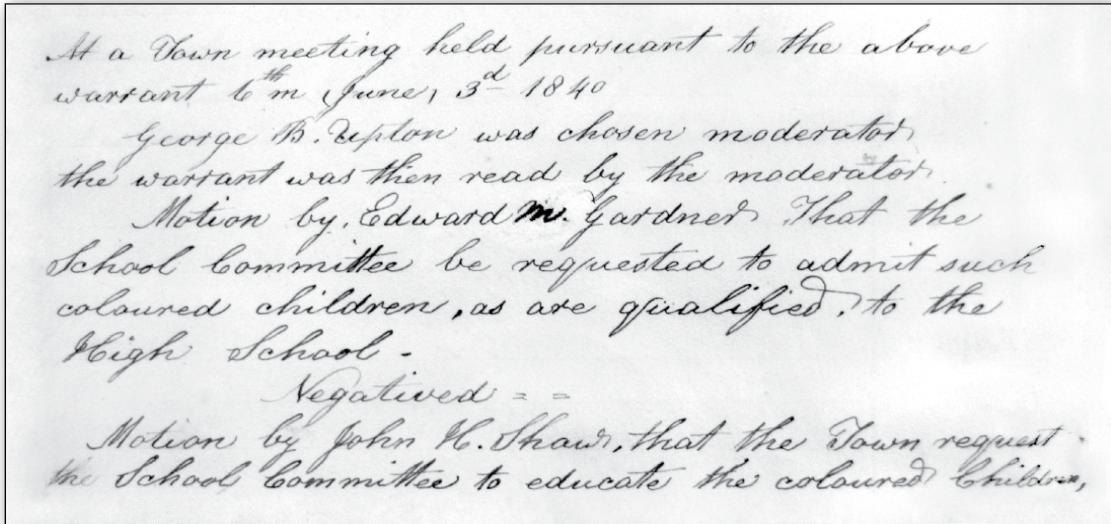 At a Town meeting held pursuant to the above
warrant 6th m June, 3d 1840
George B. Upton was chosen moderator
the warrant was then read by the moderator.
Motion by. Edward M. Gardner That the
School Committee be requested to admit such
coloured children, as are qualified, to the
High School -
Negatived = =
Motion by John H. Shaw, that the Town request
the School Committee to educate the coloured Children,